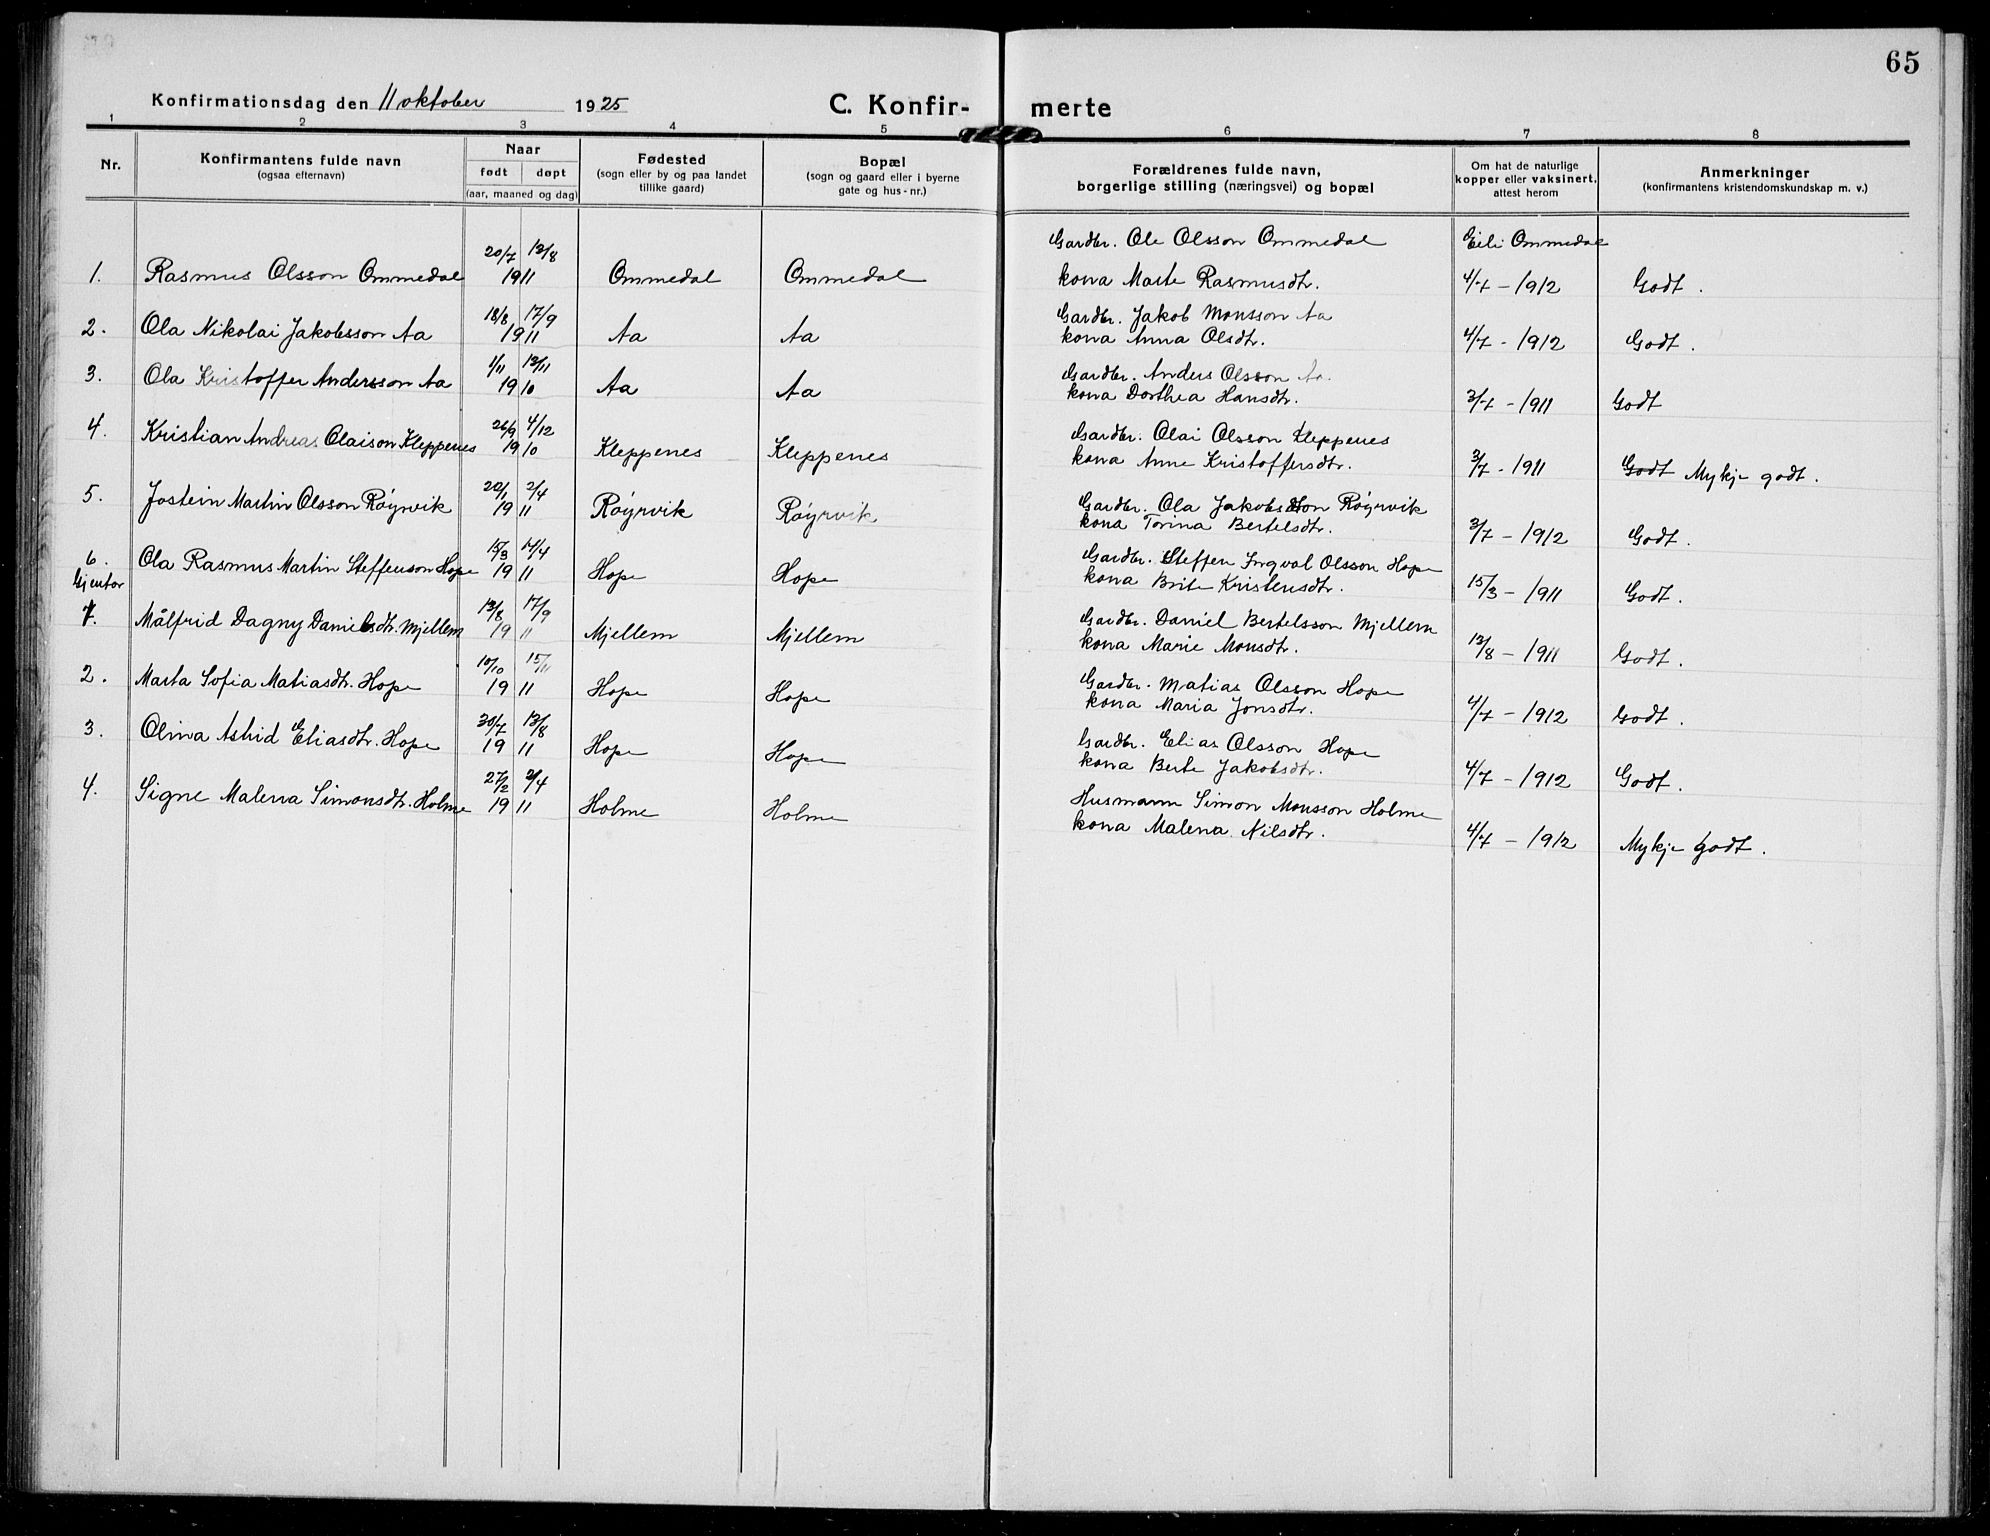 65
Konfirmationsdag den 11 oktober 1925
C. Konfir- merte
1 2 3 4 5 6 7 8
Nr.
Konfirmantens fulde navn
(ogsaa efternavn)
Naar
født døpt
(aar, maaned og dag)
Fødested
(sogn eller by og paa landet
tillike gaard)
Bopæl
(sogn og gaard eller i byerne
gate og hus-nr.)
Forældrenes fulde navn,
borgerlige stilling (næringsvei) og bopæl
Om hat de naturlige
kopper eller vaksinert,
attest herom
Anmerkninger
(konfirmantens kristendomskundskap m. v.)
20/7 13/8 Gardbr. Ole Olsson Ommedal Eili Ommedal
1. Rasmus Olsson Ommedal 1911 Ommedal Ommedal kona Marte Rasmusdtr. 4/7 - 1912 Godt.
18/8 17/9 Gardbr. Jakob Monsson Aa
2. Ola Nikolai Jakobsson Aa 1911 Aa Aa kona Anna Olsdtr. 4/7 - 1912 Godt.
1/11 13/11 Gardbr. Anders Olsson Aa.
3. Ola Kristoffer Andersson Aa 1910 Aa Aa kona Dorthea Hansdtr. 3/7 - 1911 Godt
26/9 4/12 Gardbr. Olai Olsson Kleppenes
4. Kristian Andreas Olaison Kleppenes 1910 Kleppenes Kleppenes kona Anne Kristoffersdtr. 3/7 - 1911 Godt Mykje godt.
22/1 2/4 Gardbr. Ola Jakobsson Røyrvik
5. Jostein Martin Olsson Røyrvik 1911 Røyrvik Røyrvik kona Torina Bertelsdtr. 3/7 - 1912 Godt.
15/3 17/4 Gardbr. Steffen Ingval Olsson Hope
6. Ola Rasmus Martin Steffenson Hope 1911 Hope Hope kona Brite Kristensdtr. 15/3 - 1911 Godt.
Gjentor
13/8 17/9 Gardbr. Daniel Bertelsson Mjellem
1. Målfrid Dagny Danielsdtr. Mjellem 1911 Mjellem Mjellem kona Marie Monsdtr. 13/8 - 1911 Godt.
10/10 15/11 Gardbr. Matias Olsson Hope
2. Marta Sofia Matiasdtr. Hope 1911 Hope Hope kona Maria Jonsdtr. 4/7 - 1912 Godt.
30/7 13/8 Gardbr. Elias Olsson Hope
3. Olina Astrid Eliasdtr. Hope 1911 Hope Hope kona Berte Jakobsdtr. 4/7 - 1912 Godt.
27/2 2/4 Husmann Simon Monsson Holme
4. Signe Malena Simonsdtr. Holme 1911 Holme Holme kona Malena Nilsdtr. 4/7 - 1912 Mykje godt.